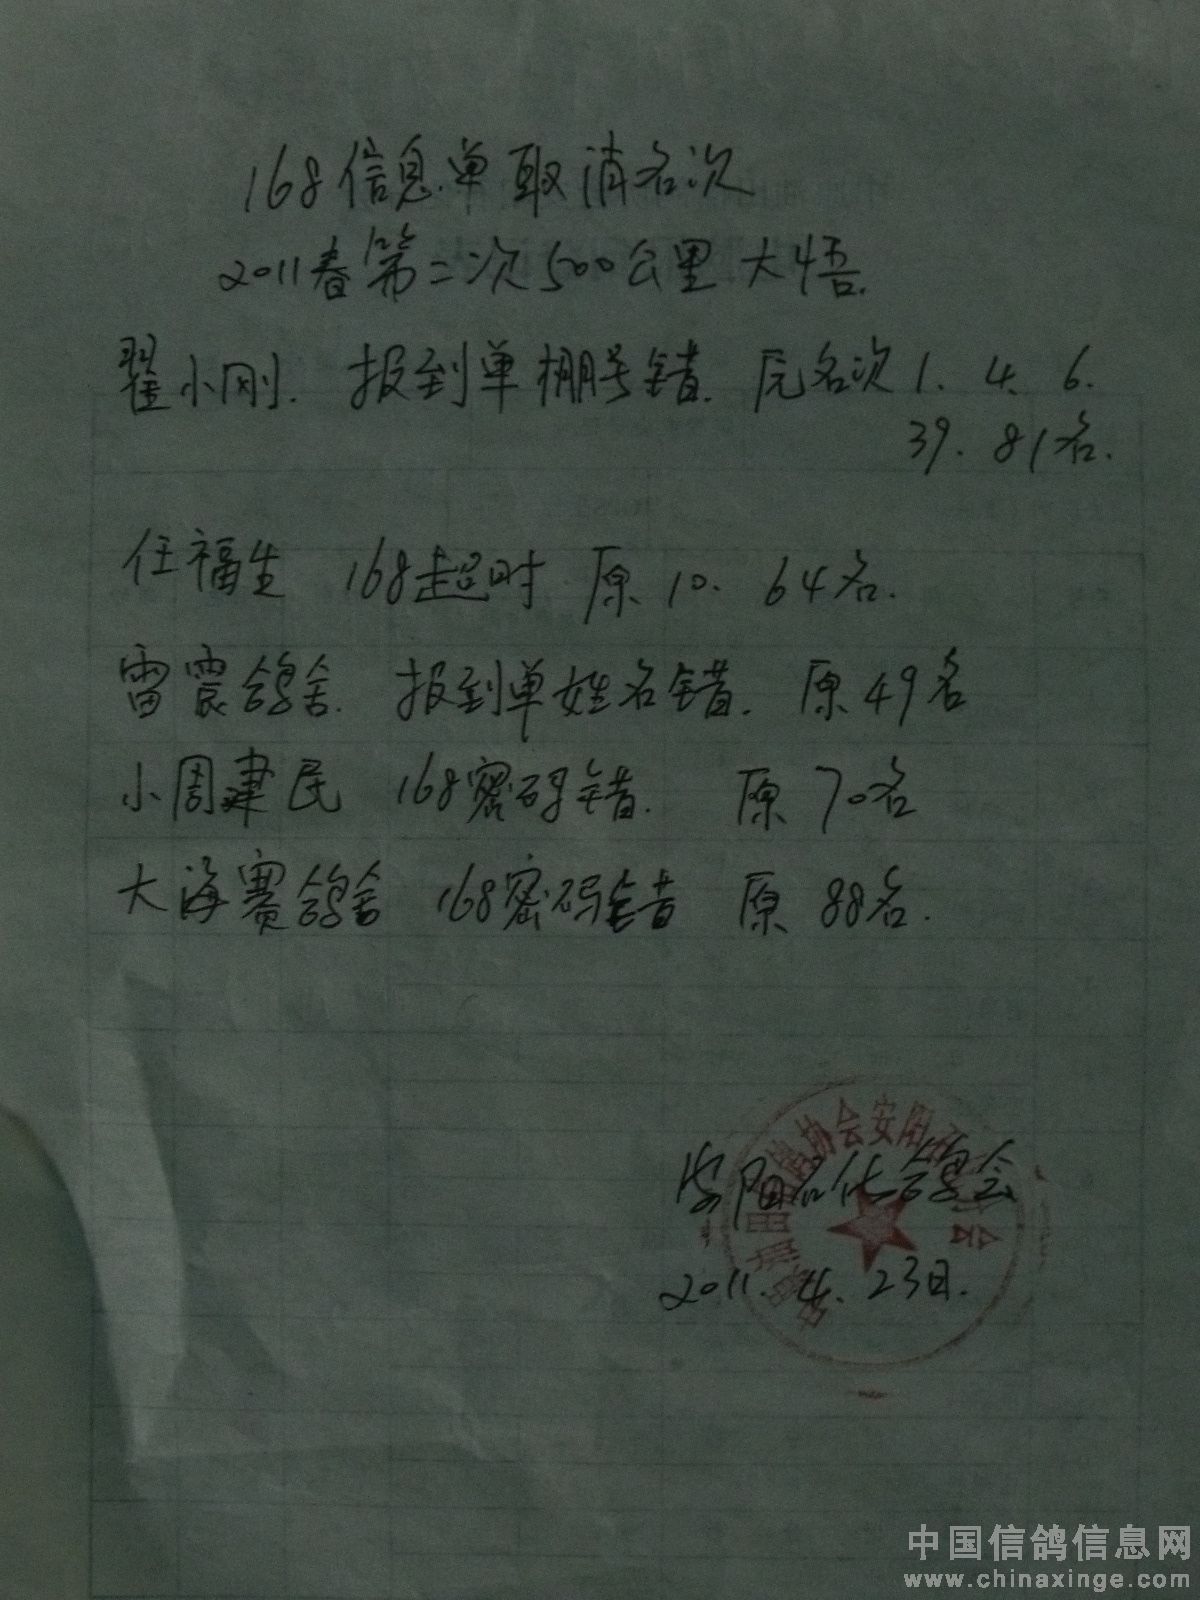 168信息单取消名次
2011春第二次500公里大悟.
翟小刚. 报到单棚号错. 原名次1. 4. 6.
39. 81名.
任福生 168超时 原10. 64名.
雷震鸽舍. 报到单姓名错. 原49名
小周建民 168密码错. 原70名
大海赛鸽舍 168密码错 原88名.
安阳名化鸽会
2011. 4. 23日.
协会安阳
中国信鸽信息网
www.chinaxinge.com